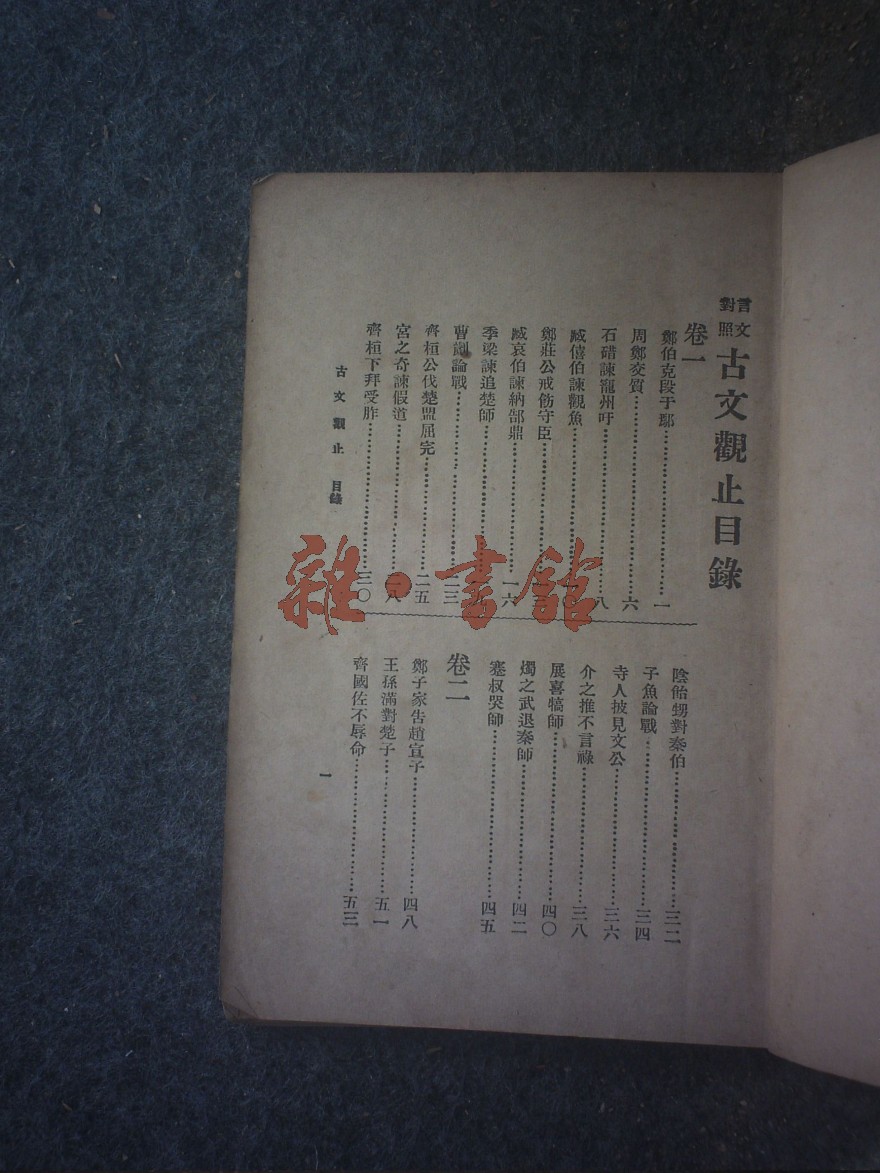 言文對照 古文觀止目錄
卷一
鄭伯克段于鄢……一
周鄭交質……六
石碏諫寵州吁……八
臧僖伯諫觀魚……一〇
鄭莊公戒飭守臣……
臧哀伯諫納郜鼎……一六
季梁諫追楚師……
曹劌論戰……二三
齊桓公伐楚盟屈完……二五
宮之奇諫假道……二八
齊桓下拜受胙……三〇
陰飴甥對秦伯……三二
子魚論戰……三四
寺人披見文公……三六
介之推不言祿……三八
展喜犒師……四〇
燭之武退秦師……四二
蹇叔哭師……四五
卷二
鄭子家告趙宣子……四八
王孫滿對楚子……五一
齊國佐不辱命……五三
古文觀止 目錄
一
雜·書館